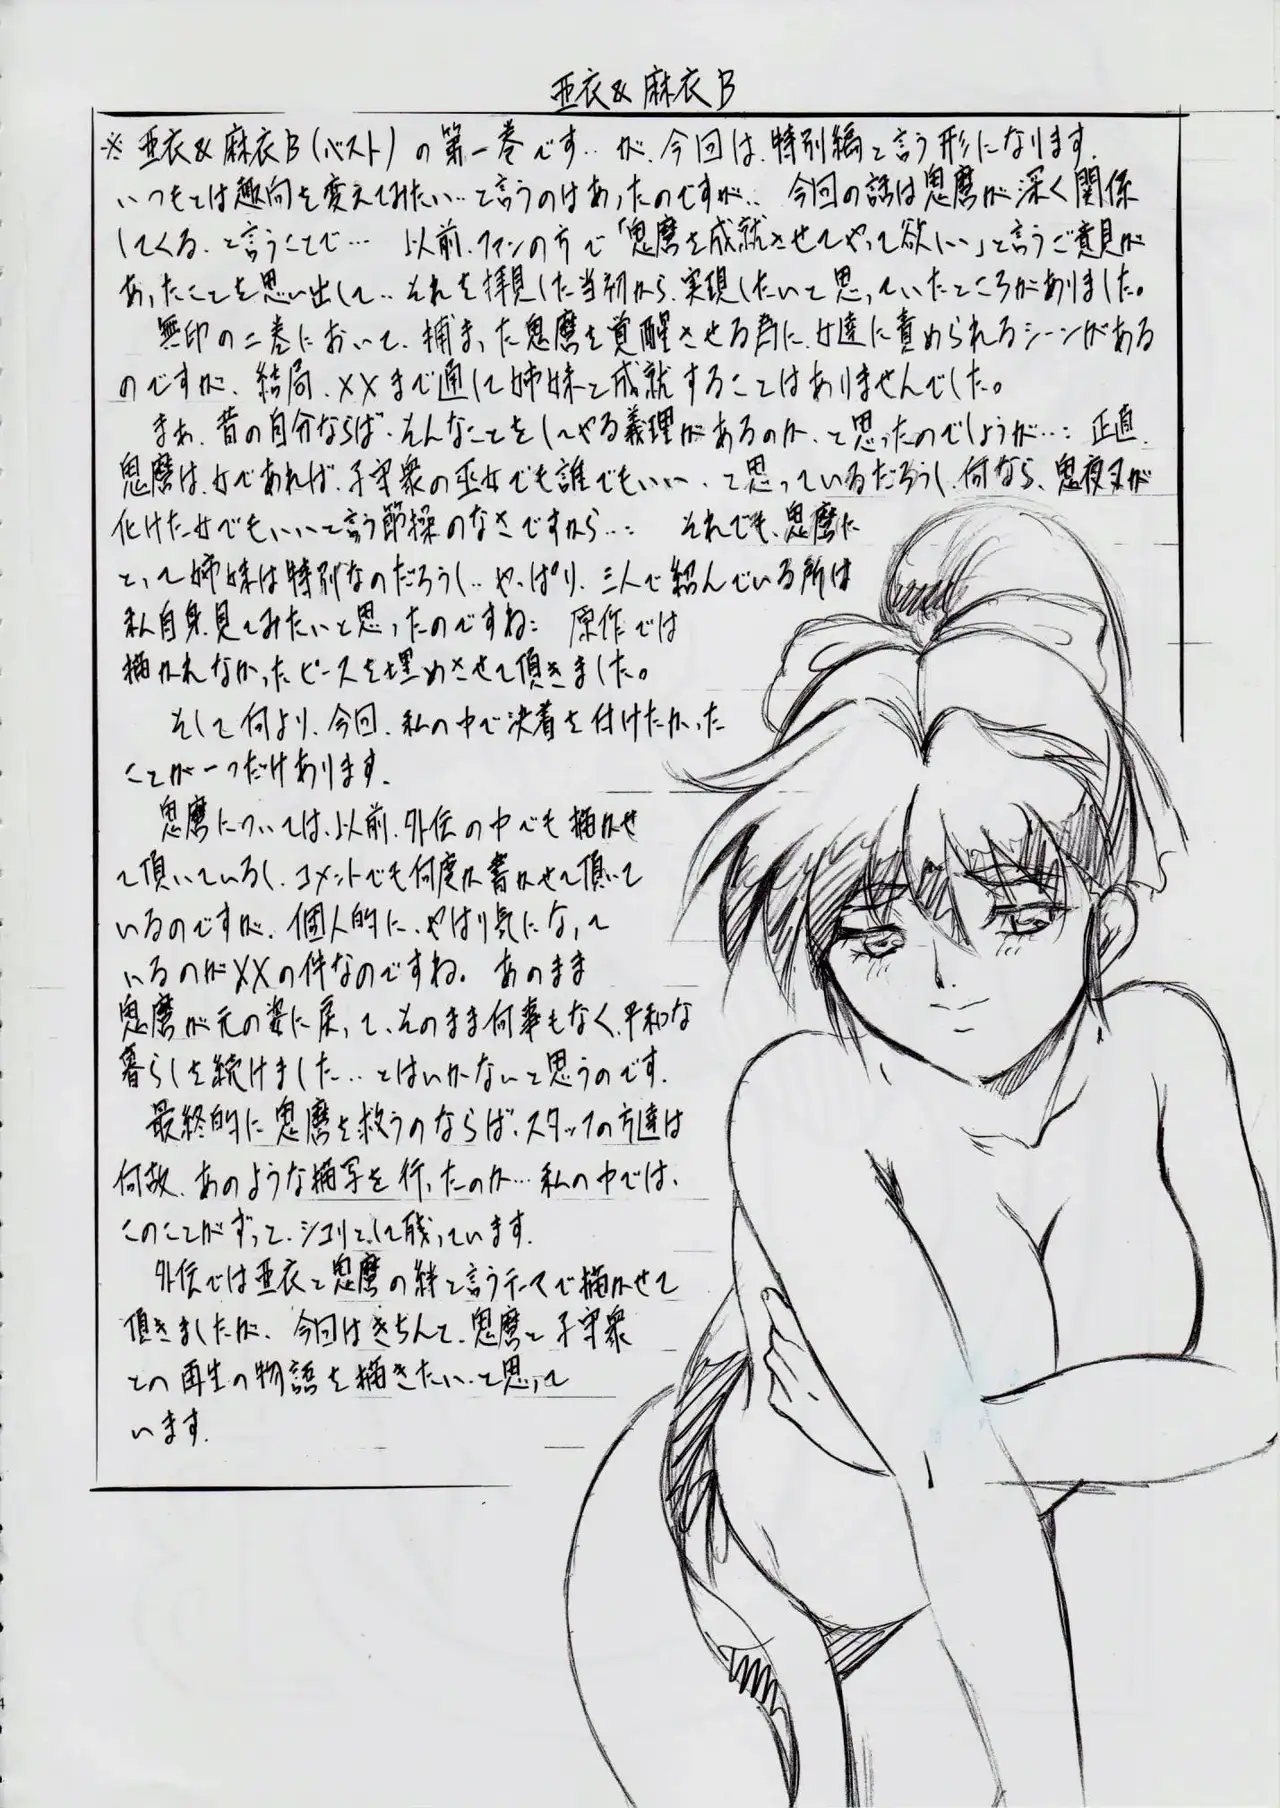 亜衣&麻衣B
※ 亜衣&麻衣B(ベスト)の第一巻です‥が、今回は、特別編と言う形になります。
いつもとは趣向を変えてみたい‥と言うのはあったのですが‥ 今回の話は鬼麿が深く関係
してくる、と言うことで… 以前、ファンの方で「鬼麿を成就させてやって欲しい」と言うご意見が
あったことを思い出して‥それを拝見した当初から、実現したいと思っていたところがありました。
無印の二巻において、捕まった鬼麿を覚醒させる為に、女達に責められるシーンがある
のですが、結局、××まで通して姉妹と成就することはありませんでした。
まあ、昔の自分ならば、そんなことをしてやる義理があるのか、と思ったのでしょうが…: 正直、
鬼麿は、女であれば、子守衆の巫女でも誰でもいい、と思っているだろうし、何なら、鬼夜叉が
化けた女でもいいと言う節操のなさですから…: それでも、鬼麿に
とって姉妹は特別なのだろうし‥やっぱり、三人で絡んでいる所は
私自身、見てみたいと思ったのですね: 原作では
描かれなかったピースを埋めさせて頂きました。
そして何より、今回、私の中で決着を付けたかった
ことが一つだけあります。
鬼麿については、以前、外伝の中でも描かせ
て頂いているし、コメントでも何度か書かせて頂いて
いるのですが、個人的に、やはり気になって
いるのが××の件なのですね。あのまま
鬼麿が元の姿に戻って、そのまま何事もなく、平和な
暮らしを続けました‥とはいかないと思うのです。
最終的に鬼麿を救うのならば、スタッフの方達は
何故、あのような描写を行ったのか…私の中では、
このことがずっと、シコリとして残っています。
外伝では亜衣と鬼麿の絆と言うテーマで描かせて
頂きましたが、今回はきちんと、鬼麿と子守衆
との再生の物語を描きたい‥と思って
います。